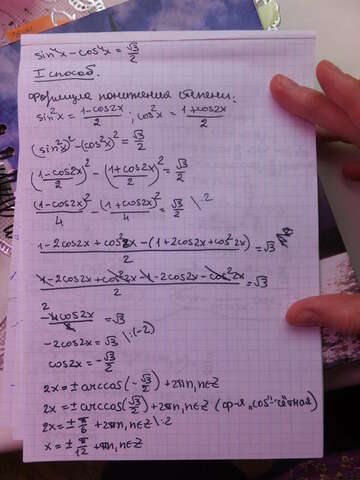 sin⁴x - cos⁴x = √3/2
I способ.
Формула понижения степени:
sin²x = (1-cos2x)/2 ; cos²x = (1+cos2x)/2
(sin²x)² - (cos²x)² = √3/2
((1-cos2x)/2)² - ((1+cos2x)/2)² = √3/2
(1-cos2x)²/4 - (1+cos2x)²/4 = √3/2 \·2
(1-2cos2x+cos²2x-(1+2cos2x+cos²2x))/2 = √3
(1-2cos2x+cos²2x-1-2cos2x-cos²2x)/2 = √3
-4cos2x/2 = √3
-2cos2x = √3 \:(-2)
cos2x = -√3/2
2x = ± arccos(-√3/2) + 2πn, n∈Z
2x = ± arccos(√3/2) + 2πn, n∈Z (ф-я "cos"-чётная)
2x = ± π/6 + 2πn, n∈Z \:2
x = ± π/12 + πn, n∈Z